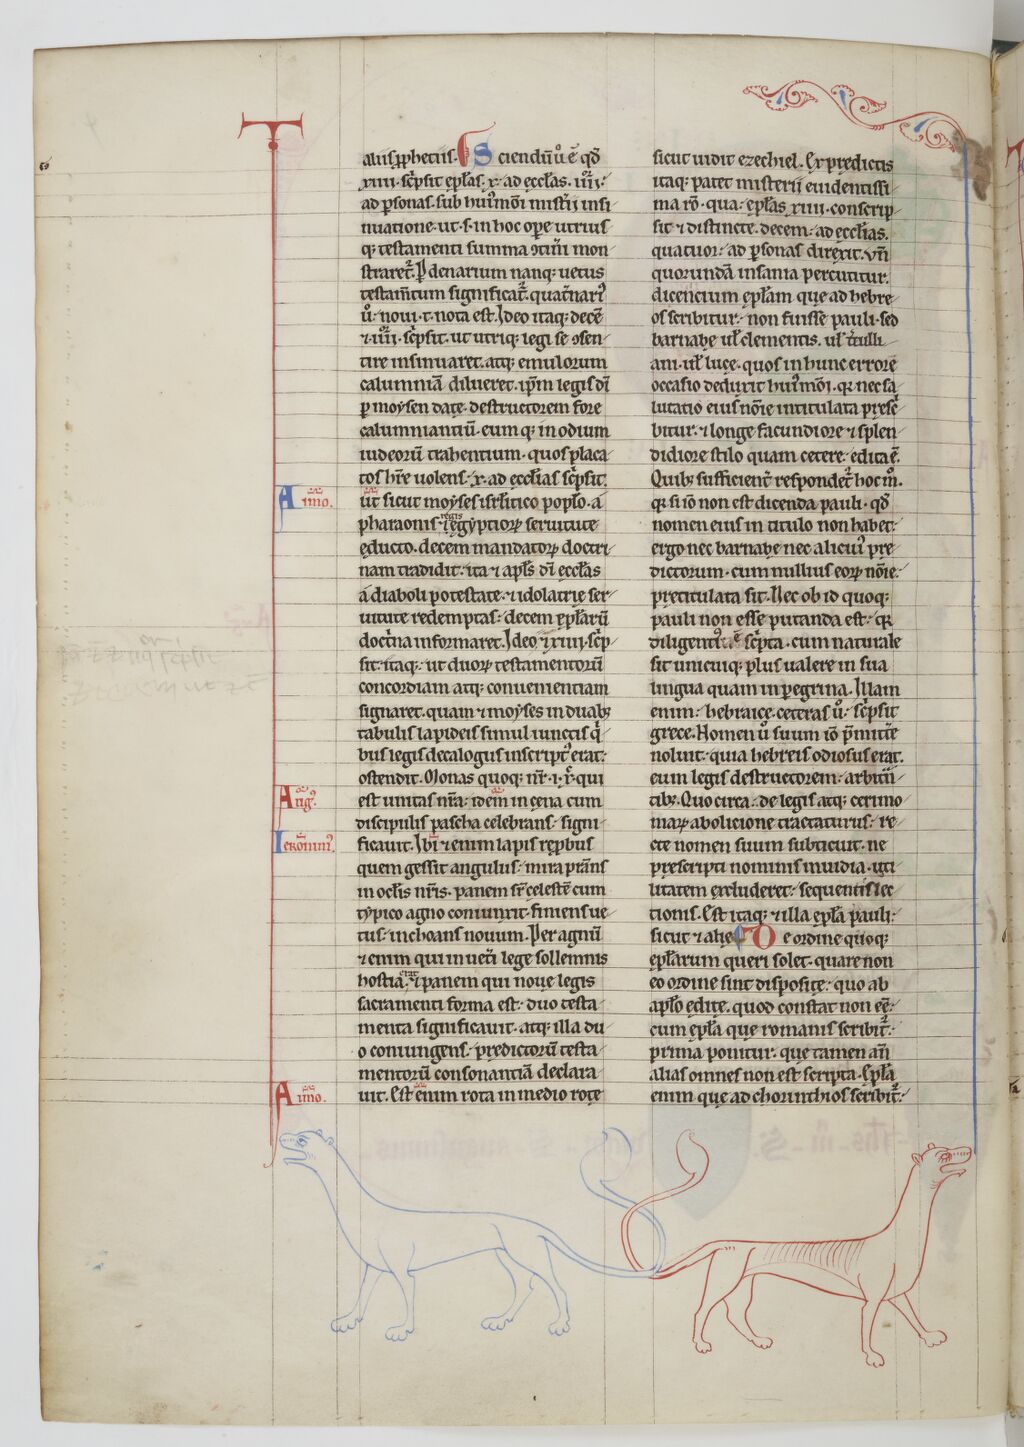 T
aliis prophetiis. Sciendū ů ē qđ
xiiii. sc̄psit ep̄las. x. ad eccl̄as. iiii.
ad p̄sonas. sub hui9mōi mist̄ii insi-
nuatione. ut. s. in hoc ope utrius
q; testamenti summa ɔtin̄i mon
straret᷑. P denarium nanq; uetus
testam̄tum significat᷑. quat̄nari9
ů noui. t. nota est. Ideo itaq; decē
⁊ iiii. sc̄psit. ut utriq; legi se ɔsen-
tire insinuaret. atq; emulorum
calumniā dilueret. ip̄m legis dī
p̲ moysen date. destructorem fore
calumniantiū. eumq; in odium
iudeorū trahentium. quos placa
tos hr̄e uolens. x. ad eccl̄ias sc̄psit.
Aimo.
ut sicut moyses isrl̄itico popl̄o. a
pharaonis regis ⁊ egyptioꝝ seruitute
educto. decem mandatoꝝ doctri-
nam tradidit. ita ⁊ apl̄s dī eccl̄as
a diaboli potestate. ⁊ idolatrie ser-
uitute redemptas. decem ep̄larū
doct̄na informaret. Ideo ⁊ xiiii. sc̄p-
sit. itaq; ut duoꝝ testamentorū
concordiam atq; conuenientiam
signaret. quam ⁊ moyses in duab;
tabulis lapideis simul iunctis q̄-
bus legis decalogus inscript9 erat.
ostendit. Monas quoq; nr̄. i. x̄. qui
Aug9.
est unitas nr̄a. idem in cena cum
discipulis pascha celebrans. signi-
Ieronim9.
ficauit. Ibī ⁊enim lapis rep̲bus
quem gessit angulus. mira prāns
in ocl̄is nr̄is. panem sc̄ celestē cum
typico agno coniunxit. finiens ue-
tus. inchoans nouum. Per agnū
⁊enim qui in uet̄i lege sollemnis
hostia erat. ⁊ panem qui noue legis
sacramenti forma est. duo testa-
menta significauit. atq; illa du-
o coniungens. predictorū testa-
mentorū consonantiā declara-
Aimo.
uit. Est enim rota in medio rote
sicut uidit ezechiel. Ex predictis
itaq; patet misterij euidentissi-
ma rō. qua. ep̄las xiiii. conscrip-
sit ⁊ distincte. decem. ad eccl̄ias.
quatuor. ad p̄sonas direxit. vn̄
quorundā insania percutitur.
dicencium ep̄lam que ad hebre-
os scribitur. non fuisse pauli. sed
barnabe ul̄ clementis. ul̄ t̄tulli-
ani. ul̄ luce. quos in hunc errorē
occasio deduxit hui9mōi. qꝛ nec sa-
lutatio eius nōie intitulata presc̄-
bitur. ⁊ longe facundiore ⁊ splen
didiore stilo quam cetere. edita ē.
Quib; sufficient᷑ respondet᷑ hoc m̊.
qꝛ si iō non est dicenda pauli. qđ
nomen eius in titulo non habet.
ergo nec barnabe nec alicui9 pre-
dictorum. cum nullius eoꝝ nōie.
pretitulata sit. Nec ob id quoq;
pauli non esse putanda est. qꝛ
diligenti9 ē sc̄pta. cum naturale
sit unicuiq; plus ualere in sua
lingua quam in peregrina. Illam
enim. hebraice. ceteras ů. sc̄psit
grece. Nomen ů suum iō p̄mitte
noluit. quia hebreis odiosus erat.
eum legis destructorem. arbitn̄-
tib;. Quo circa. de legis atq; cerimo-
niaꝝ abolicione tractaturus. re-
cte nomen suum subticuit. ne
prescripti nominis inuidia. uti-
litatem excluderet. sequentis lec-
tionis. Est itaq; ⁊ illa ep̄la pauli.
sicut ⁊ alie. De ordine quoq;
ep̄larum queri solet. quare non
eo ordine sint disposite. quo ab
apl̄o edite. quod constat non eē.
cum ep̄la que romanis scribit᷑.
prima ponitur. que tamen an̄
alias omnes non est scripta. Ep̄la
enim que ad chorinthios scribit᷑.